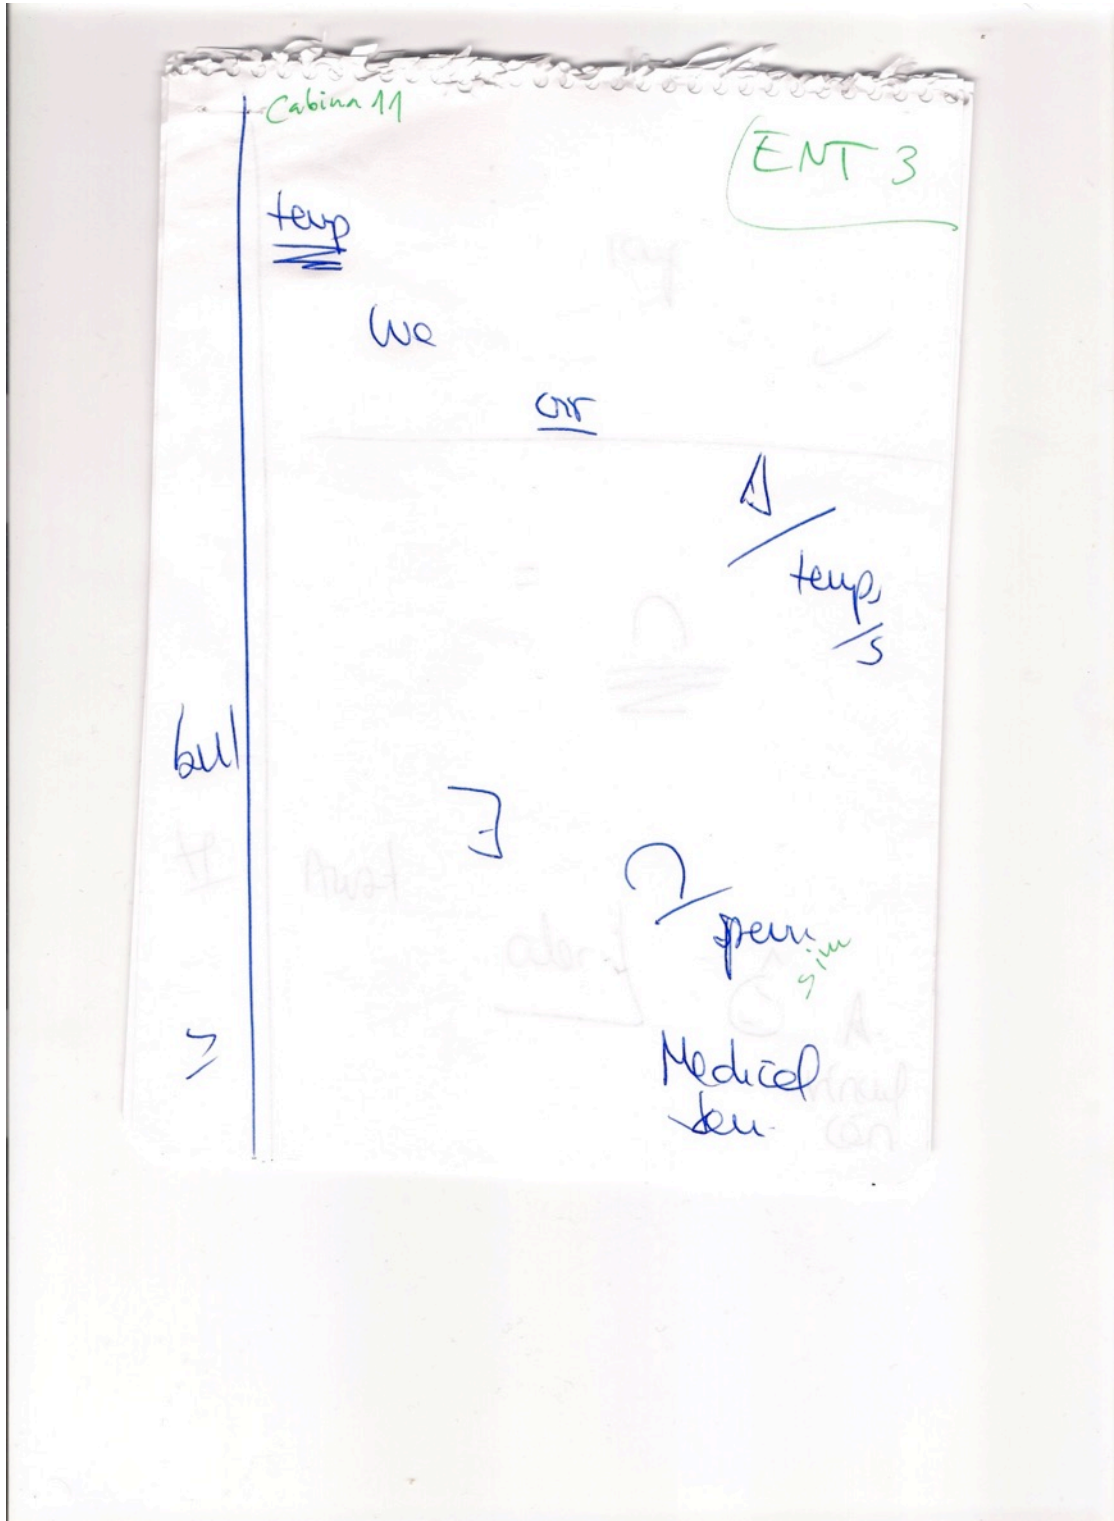 Cabina 11
ENT 3
temp
We
Δ
temp
/s
but
perm
sim
Medical